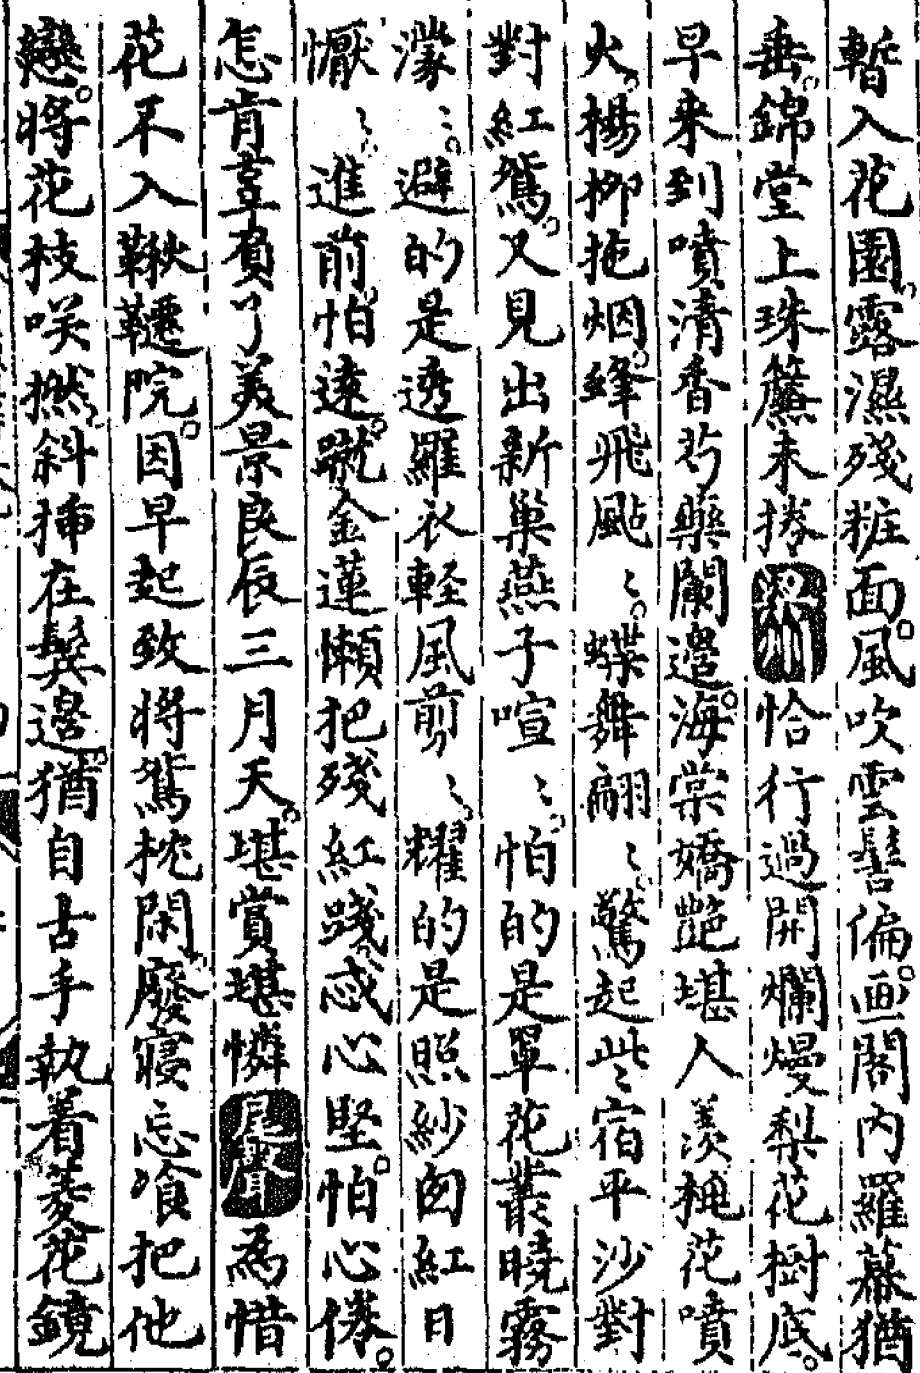 暫入花園露濕殘粧面風吹雲髻偏画閣內羅幕猶
垂錦堂上珠簾未捲恰行過開爛熳梨花樹底
早来到噴清香芍藥闌邉海棠嬌艶堪人羨桃花噴
火楊柳拖烟蜂飛颭〻蝶舞翩〻驚起些宿平沙對
對紅鴛又見出新巢燕子喧〻怕的是單花叢曉霧
濛〻避的是透羅衣軽風剪〻耀的是照紗囱紅日
懨〻進前怕逺蹴金蓮懶把殘紅踐忒心堅怕心倦
怎肯辜負了美景良辰三月天堪賞堪憐尾聲為惜
花不入鞦韆院因早起致將鴛枕閑廢寝忘飡把他
戀將花枝咲撚斜揷在鬂邉猶自古手執着菱花鏡